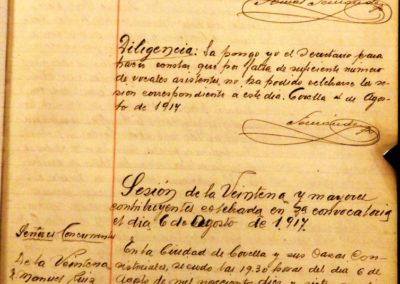 Diligencia: La pongo yo el Secretario para
hacer constar que por falta de suficiente número
de vocales asistentes, no ha podido celebrarse la se-
sion correspondiente a este dia. Corella 4 de Agos-
to de 1917.
Sesión de la Veintena y mayores
contribuyentes celebrada en 2ª convocatoria
el dia 6 de Agosto de 1917.
Señores Concurrentes
De la Veintena
D. Manuel Ruiz
En la Ciudad de Corella y sus Casas Con-
sistoriales, siendo las 19.30 horas del dia 6 de
Agosto de mil novecientos diez y siete